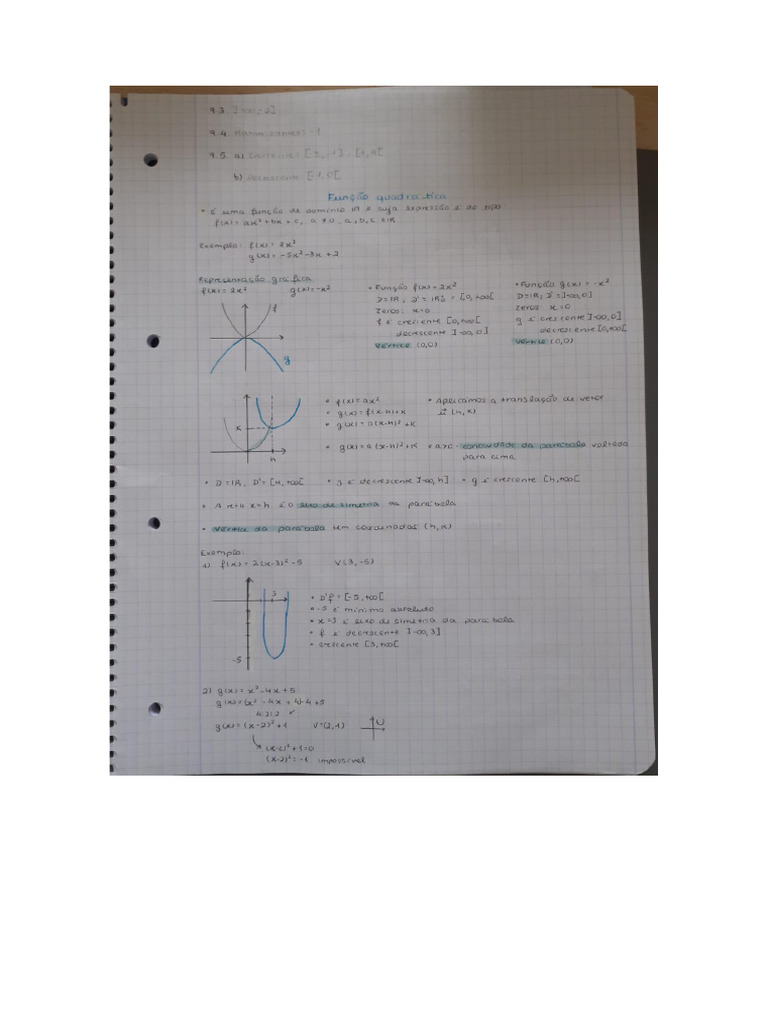 9.3. ]-∞, 2]
9.4.
9.5. a) Crescente: [-3, -1] , [1, 4[
b) Decrescente [-1, 0[
Função quadrática
• É uma função de domínio IR e cuja expressão é do tipo
f(x) = ax² + bx + c, a ≠ 0, a, b, c ∈ IR
Exemplo: f(x) = 2x²
g(x) = -5x² - 3x + 2
Representação gráfica
f(x) = 2x² g(x) = -x²
f
g
• Função f(x) = 2x²
D = IR, D' = IR₀⁺ = [0, +∞[
Zeros: x = 0
f é crescente [0, +∞[
decrescente ]-∞, 0]
Vértice (0,0)
• Função g(x) = -x²
D = IR, D' = ]-∞, 0]
Zeros: x = 0
g é crescente ]-∞, 0]
decrescente [0, +∞[
Vértice (0,0)
K
h
• f(x) = ax²
• g(x) = f(x-h) + K
• g(x) = a(x-h)² + K
• Aplicamos a translação de vetor
u⃗ (h, K)
• g(x) = a(x-h)² + K • a>0 - concavidade da parábola voltada
para cima
• D = IR, D' = [K, +∞[ • g é decrescente ]-∞, h] • g é crescente [h, +∞[
• A reta x = h é o eixo de simetria da parábola
• Vértice da parábola tem coordenadas (h, K)
Exemplo:
1) f(x) = 2(x-3)² - 5 V(3, -5)
3
-5
• D'f = [-5, +∞[
• -5 é mínimo absoluto
• x = 3 é eixo de simetria da parábola
• f é decrescente ]-∞, 3]
• crescente [3, +∞[
2) g(x) = x² - 4x + 5
g(x) = (x² - 4x + 4) - 4 + 5
4:2=2
g(x) = (x-2)² + 1 V = (2, 1)
(x-2)² + 1 = 0
(x-2)² = -1 impossível